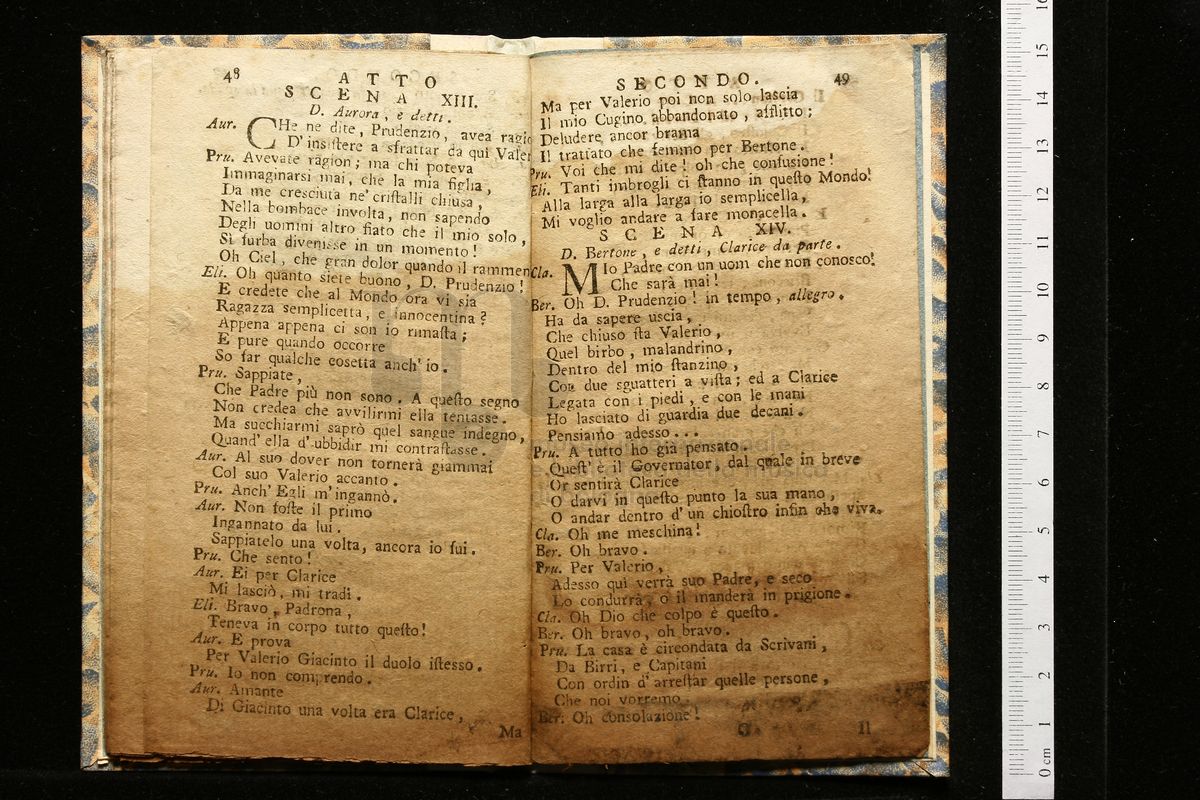 48
ATTO
SCENA XIII.
D. Aurora, e detti.
Aur. CHe ne dite, Prudenzio, avea ragio
D' insistere a sfrattar da qui Valer
Pru. Avevate ragion; ma chi poteva
Immaginarsi mai, che la mia figlia,
Da me cresciuta ne' cristalli chiusa,
Nella bombace involta, non sapendo
Degli uomini altro fiato che il mio solo,
Si furba divenisse in un momento!
Oh Ciel, che gran dolor quando il rammen
Eli. Oh quanto siete buono, D. Prudenzio!
E credete che al Mondo ora vi sia
Ragazza semplicetta, e innocentina?
Appena appena ci son io rimasta;
E pure quando occorre
So far qualche cosetta anch' io.
Pru. Sappiate,
Che Padre più non sono. A questo segno
Non credea che avvilirmi ella tentasse.
Ma succhiarmi saprò quel sangue indegno,
Quand' ella d' ubbidir mi contrastasse.
Aur. Al suo dover non tornerà giammai
Col suo Valerio accanto.
Pru. Anch' Egli m' ingannò.
Aur. Non foste il primo
Ingannato da lui.
Sappiatelo una volta, ancora io fui.
Pru. Che sento!
Aur. Ei per Clarice
Mi lasciò, mi tradì.
Eli. Bravo, Padrona,
Teneva in corpo tutto questo!
Aur. E prova
Per Valerio Giacinto il duolo istesso.
Pru. Io non comprendo.
Aur. Amante
Di Giacinto una volta era Clarice,
Ma
SECONDO.
49
Ma per Valerio poi non solo lascia
Il mio Cugino abbandonato, afflitto;
Deludere ancor brama
Il trattato che femmo per Bertone.
Pru. Voi che mi dite! oh che confusione!
Eli. Tanti imbrogli ci stanno in questo Mondo!
Alla larga alla larga io semplicella,
Mi voglio andare a fare monacella.
SCENA XIV.
D. Bertone, e detti, Clarice da parte.
Cla. MIo Padre con un uom che non conosco!
Che sarà mai!
Ber. Oh D. Prudenzio! in tempo, allegro.
Ha da sapere uscia,
Che chiuso sta Valerio,
Quel birbo, malandrino,
Dentro del mio stanzino,
Con due sguatteri a vista; ed a Clarice
Legata con i piedi, e con le mani
Ho lasciato di guardia due decani.
Pensiamo adesso...
Pru. A tutto ho già pensato.
Quest' è il Governator, dal quale in breve
Or sentirà Clarice
O darvi in questo punto la sua mano,
O andar dentro d' un chiostro infin che viva.
Cla. Oh me meschina!
Ber. Oh bravo.
Pru. Per Valerio,
Adesso qui verrà suo Padre, e seco
Lo condurrà, o il manderà in prigione.
Cla. Oh Dio che colpo è questo.
Ber. Oh bravo, oh bravo.
Pru. La casa è circondata da Scrivani,
Da Birri, e Capitani
Con ordin d' arrestar quelle persone,
Che noi vorremo.
Ber. Oh consolazione!
Il